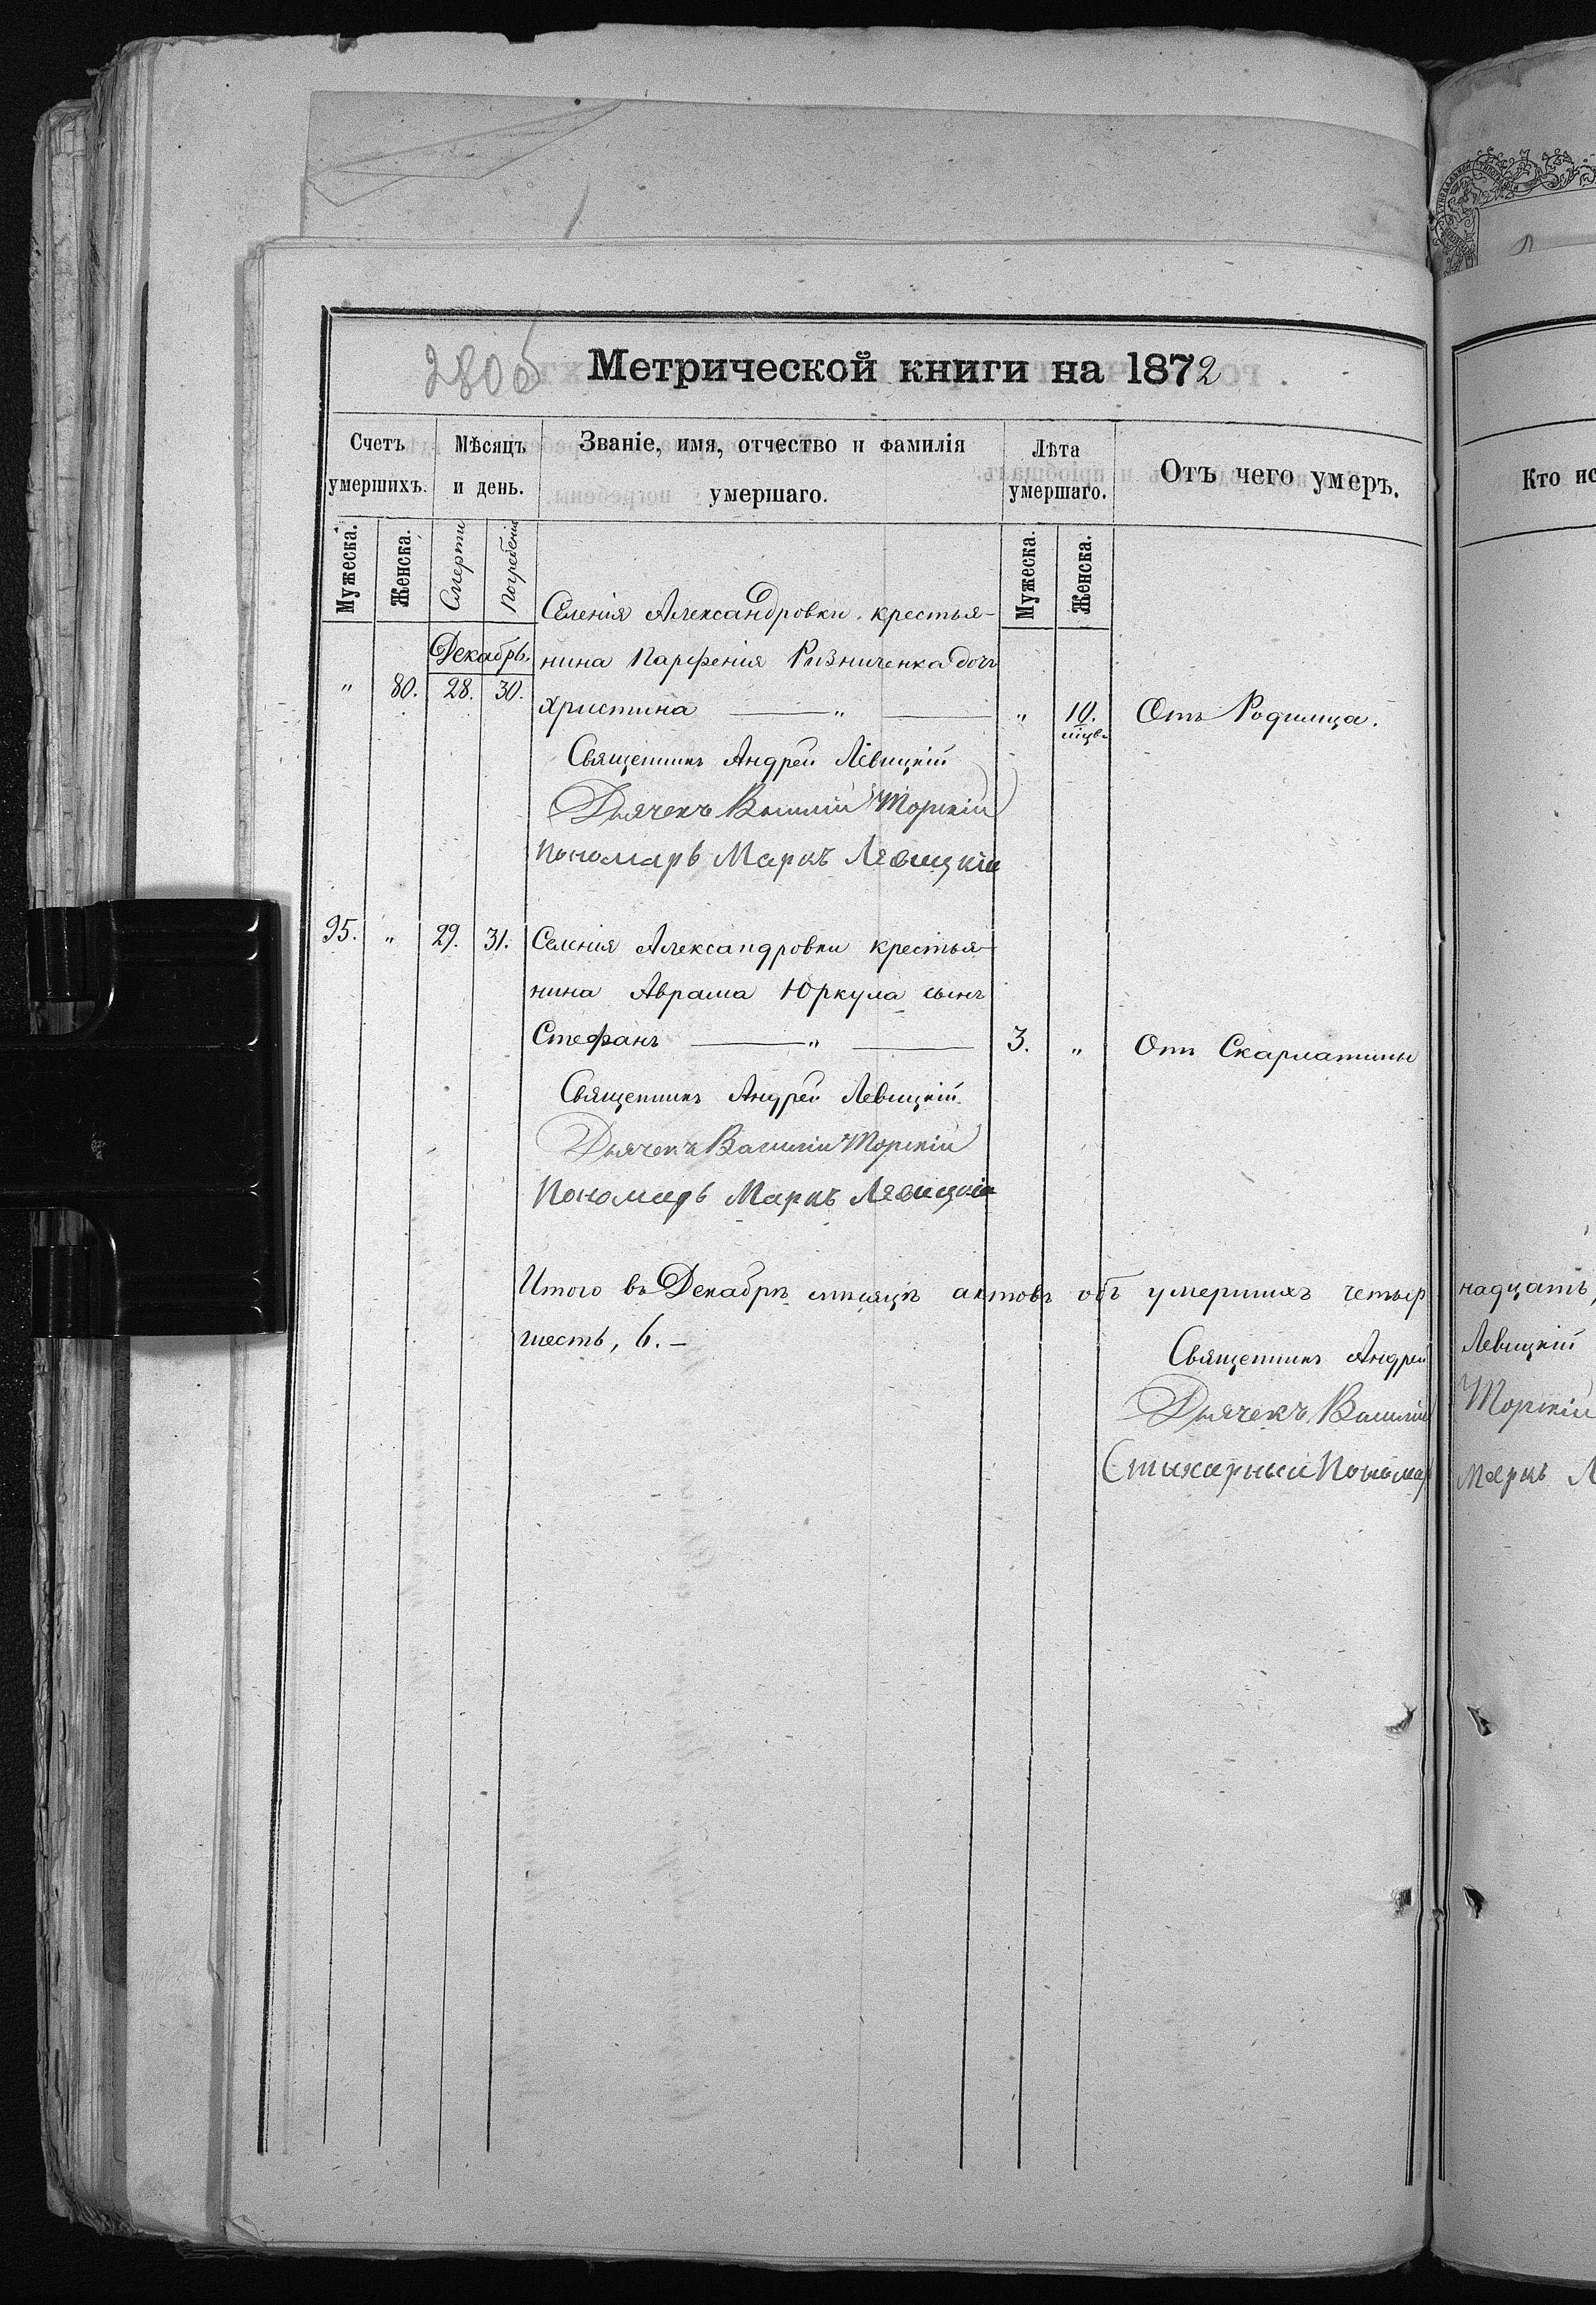 280 об
Метрической книги на 1872
Счетъ умершихъ.
Мѣсяцъ и день.
Званіе, имя, отчество и фамилія умершаго.
Лѣта умершаго.
Отъ чего умеръ.
Кто ис
Мужеска.
Женска.
Смерти
Погребенія
Мужеска.
Женска.
Селенія Александровки крестья-
Декабрь.
нина Парфенія Ризниченка дочь
" 80. 28. 30.
Христина — " — " 10. мцв. Отъ Родимца.
Священникъ Андрей Левицкій
Дьячекъ Василій Торскій
Пономарь Маркъ Левицкій
95. " 29. 31. Селенія Александровки крестья-
нина Аврама Юркула сынъ
Стефанъ — " — 3. " Отъ Скарлатины
Священникъ Андрей Левицкій
Дьячекъ Василій Торскій
Пономарь Маркъ Левицкій
Итого въ Декабрѣ мѣсяцѣ актовъ объ умершихъ четыр надцать,
шесть, 6. –
Священникъ Андрей Левицкій
Дьячекъ Василій Торскій
Стихарный Пономар Маркъ Л